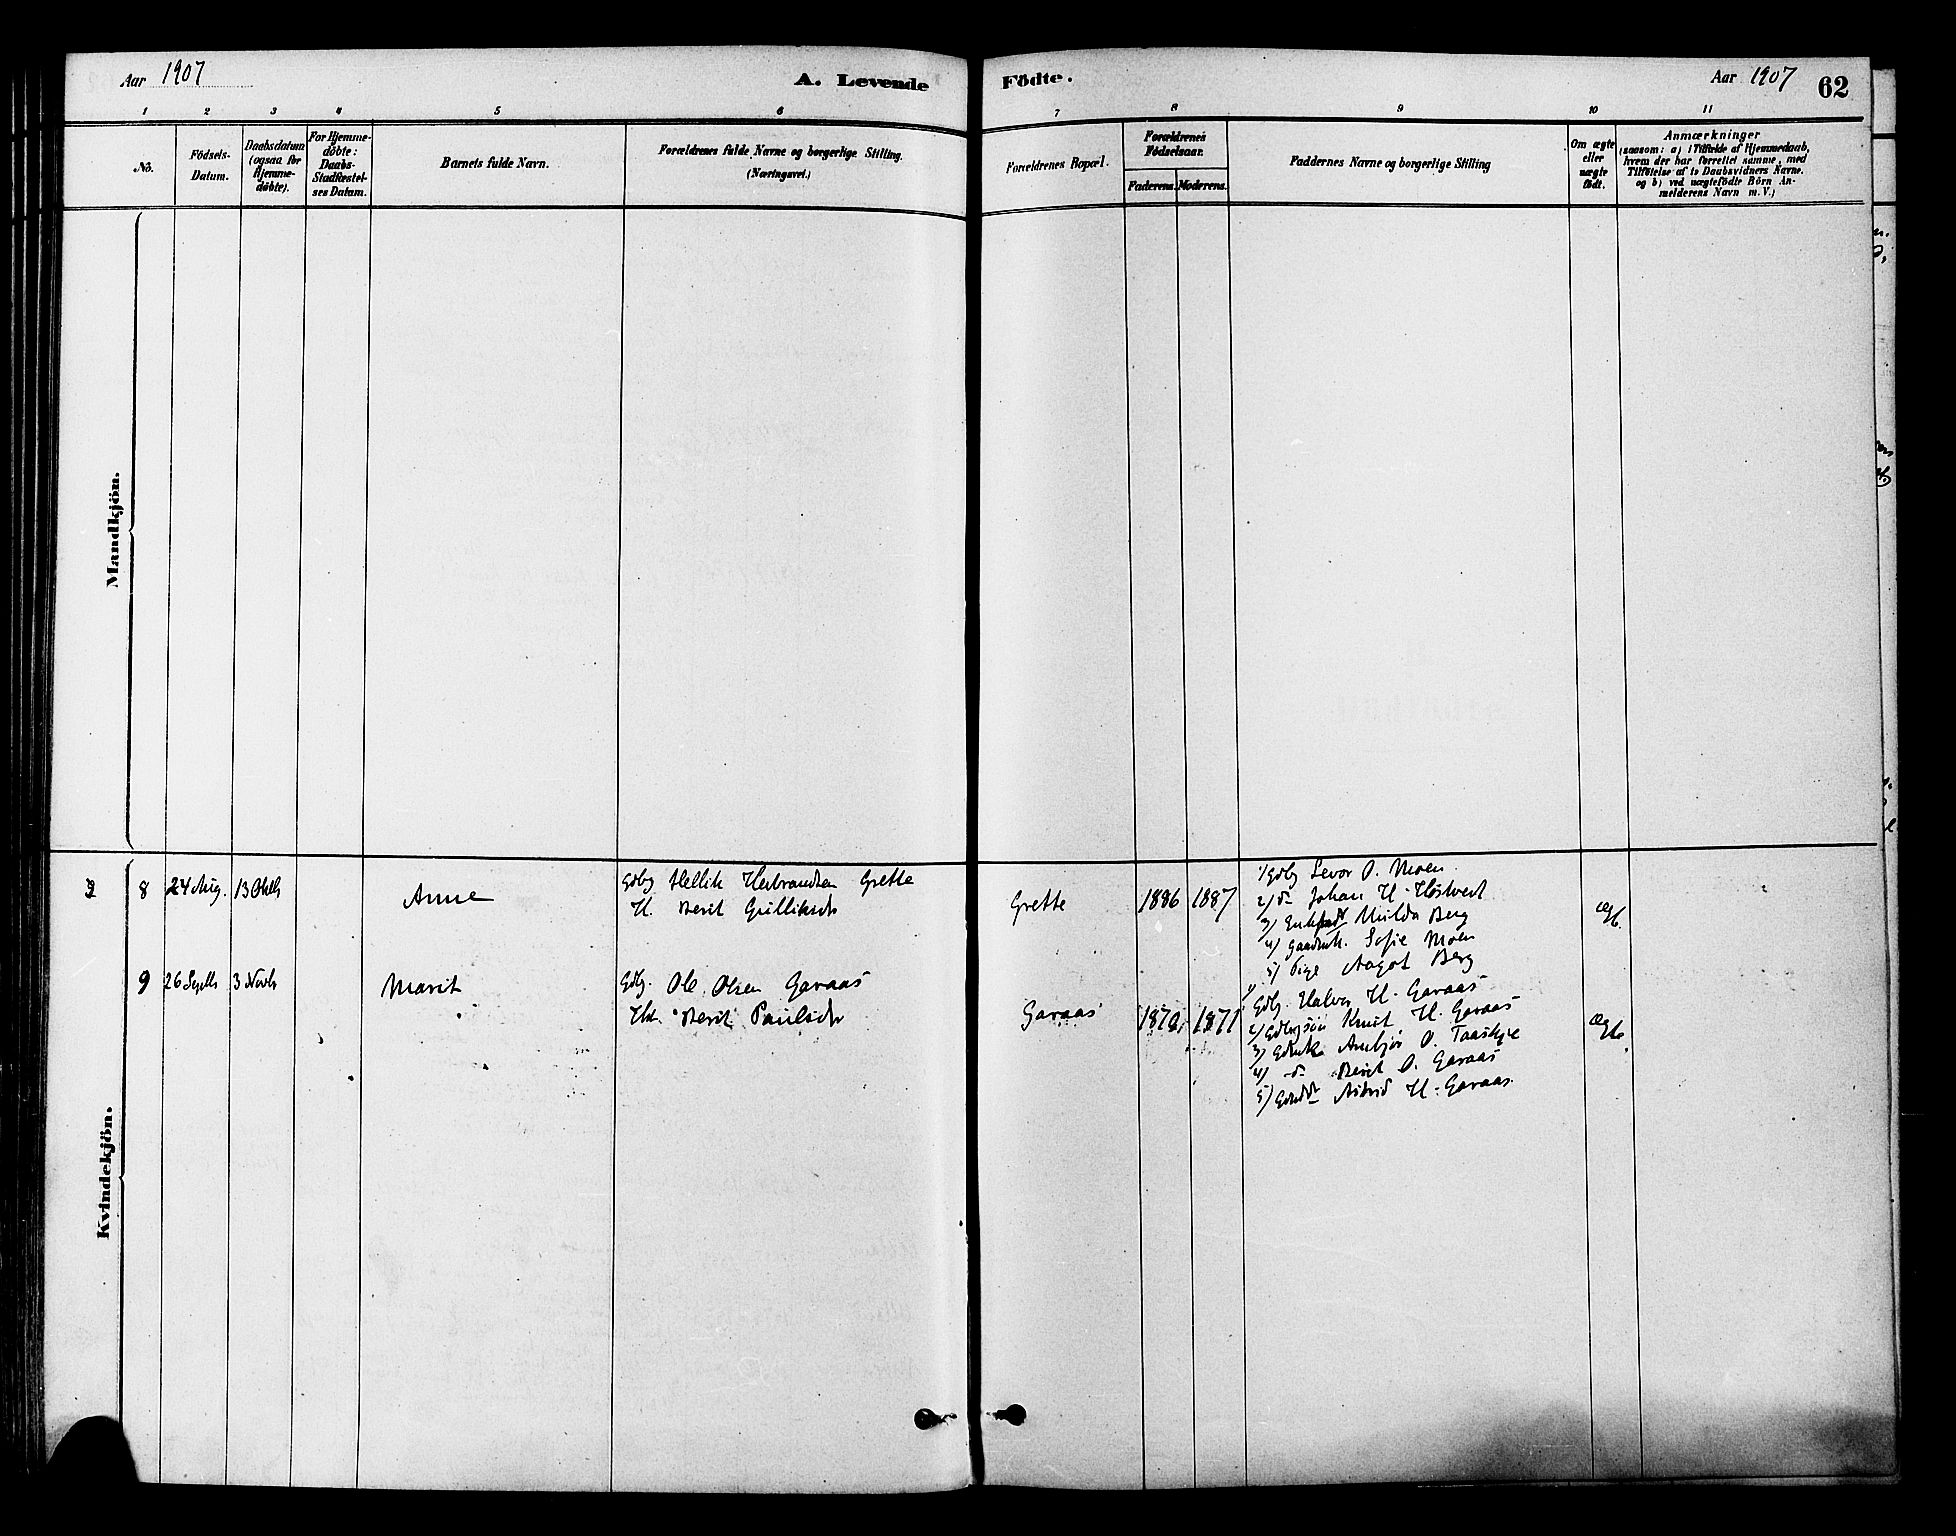 Aar 1907
A. Levende
Födte.
Aar 1907
62
1 2 3 4 5 6 7 8 9 10 11
No.
Födsels-
Datum.
Daabsdatum
(ogsaa for
Hjemme-
döbte).
For Hjemme-
döbte:
Daabs-
Stadfæstel-
ses Datum.
Barnets fulde Navn.
Forældrenes fulde Navne og borgerlige Stilling.
(Næringsvei.)
Forældrenes Bopæl.
Forældrenes
Födselsaar.
Faderens. Moderens.
Faddernes Navne og borgerlige Stilling
Om ægte
eller
uægte
födt.
Anmærkninger
(saasom: a) i Tilfælde af Hjemmedaab,
hvem der har forrettet samme, med
Tilföielse af to Daabsvidners Navne.
og b) ved uægtefödte Börn An-
melderens Navn m.V.)
Mandkjön.
Kvindekjön.
8
24 Aug.
13 Oktb
Anne
Gdbg Hellik Herbrandsen Grette
H. Berit Gulliksdr
Grette
1886
1887
1/ Gdbg Levor O. Moen
2/ do Johan H. Høstvedt
3/ Hilda Berg
4/ Gaardmk. Sofie Moen
5/ Pige Aagot Berg
ægt.
9
26 Septb
3 Novb
Marit
Gdbg. Ole Olsen Garaas
Hst. Berit Paulsdr
Garaas
1872
1871
1/ Gdbg. Halvor H. Garaas
2/ Gdbgsøn Knut H. Garaas
3/ Gdmk. Anbjør O. Taaskje
4/ do Berit O. Garaas
5/ Astrid H. Garaas.
ægte.